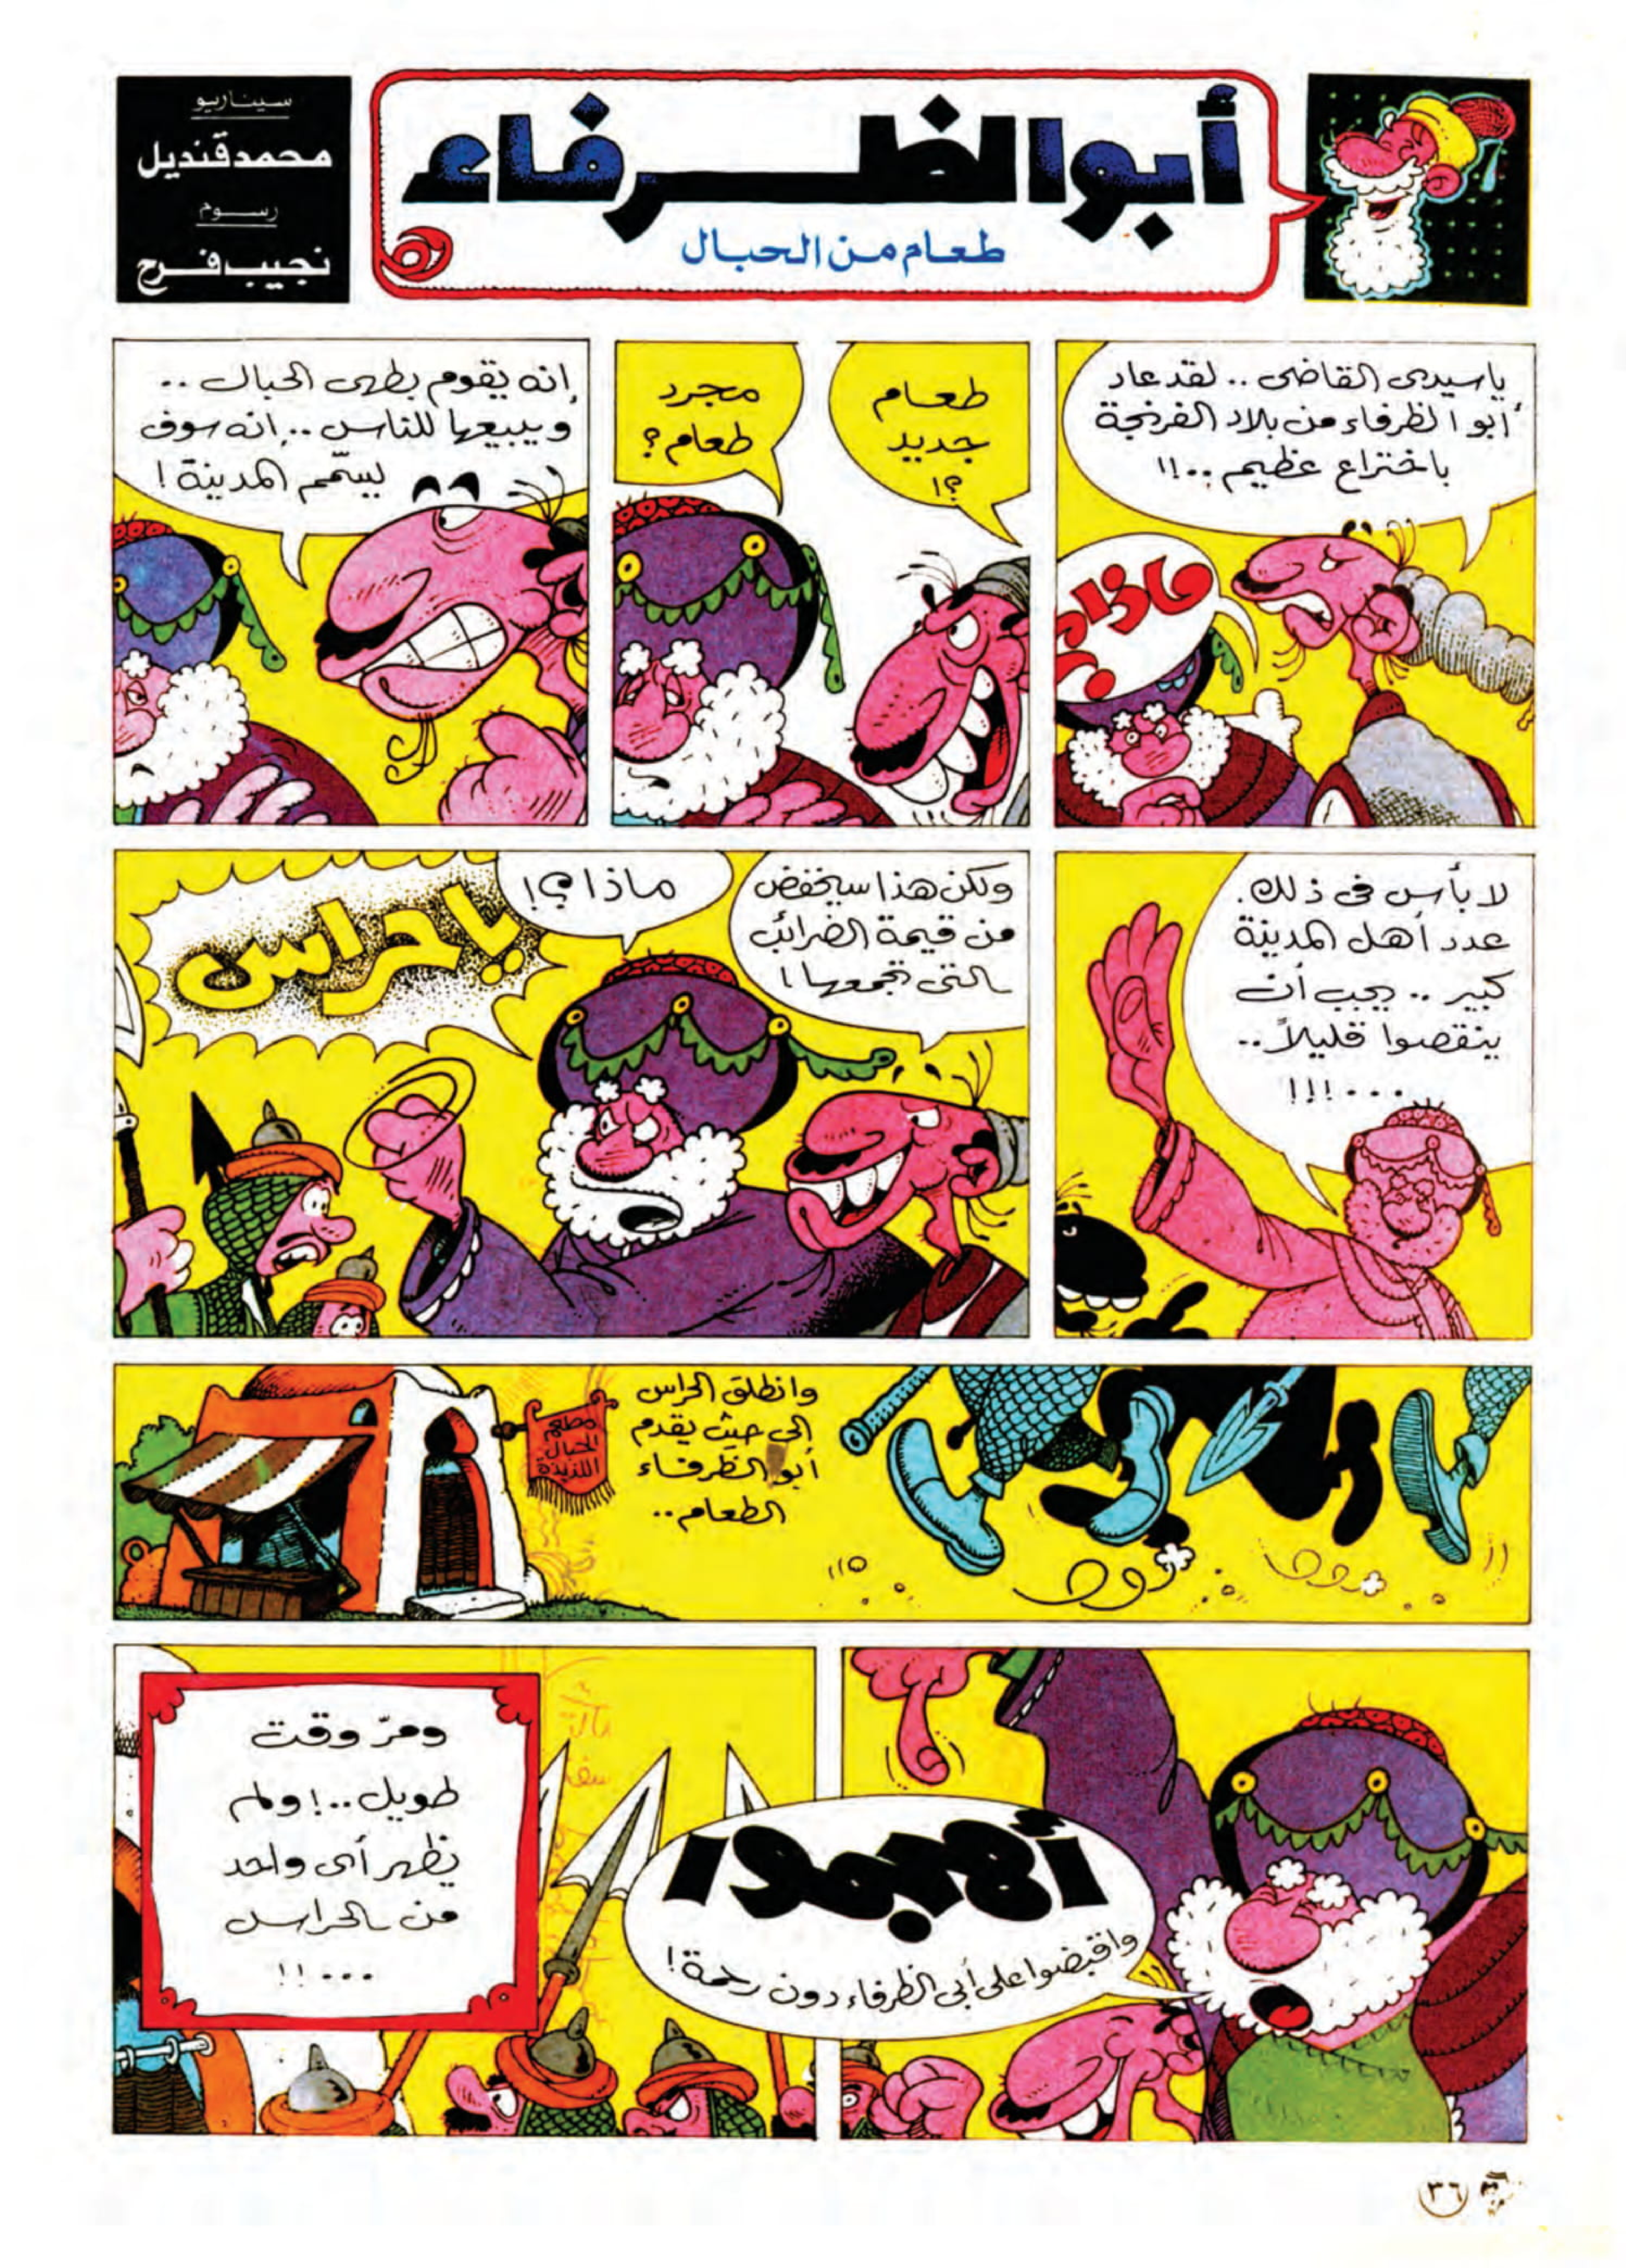 أبو الظرفاء
طعام من الحبال
سيناريو
محمد قنديل
رسوم
نجيب فرح
يا سيدى القاضى .. لقد عاد
أبو الظرفاء من بلاد الفرنجة
باختراع عظيم ..!!
ماذا؟
طعام
جديد
؟!
مجرد
طعام؟
إنه يقوم بطهى الحبال ..
ويبيعها للناس .. إنه سوف
يسمّم المدينة!
لا بأس فى ذلك.
عدد أهل المدينة
كبير .. يجب أن
ينقصوا قليلاً..
...!!!
ولكن هذا سيخفض
من قيمة الضرائب
التى تجمعها!
ماذا؟!
يا حراس
وانطلق الحراس
الى حيث يقدم
أبو الظرفاء
الطعام..
مطعم
الحبال
اللذيذة
أهجموا
واقبضوا على أبى الظرفاء دون رحمة!
ومرّ وقت
طويل..! ولم
يظهر أى واحد
من الحراس
...!!
٣٦